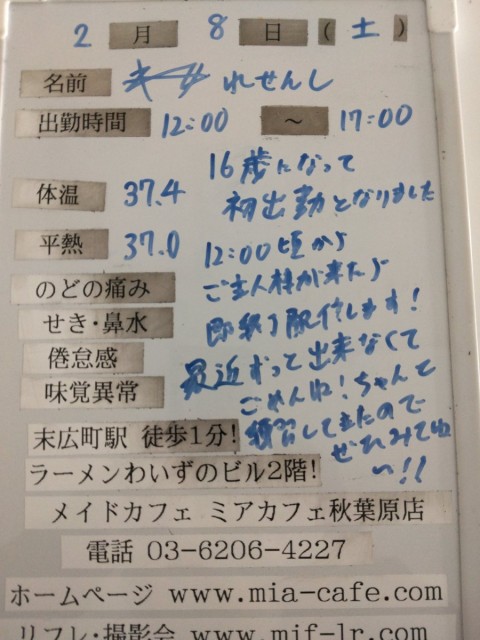 2 月 8 日 ( 土 )
名前 れせんし
出勤時間 12:00 ～ 17:00
16歳になって
体温 37.4 初出勤となりました
平熱 37.0 12:00頃から
のどの痛み ご主人様が来たら
せき・鼻水 即終了配信します!
倦怠感 最近ずっと出来なくて
味覚異常 ごめんね!ちゃんと
末広町駅 徒歩1分! 練習してきたので
ぜひみてね
ラーメンわいずのビル2階! い!!
メイドカフェ ミアカフェ秋葉原店
電話 03-6206-4227
ホームページ www.mia-cafe.com
リフレ・撮影会 www.mif-lr.com